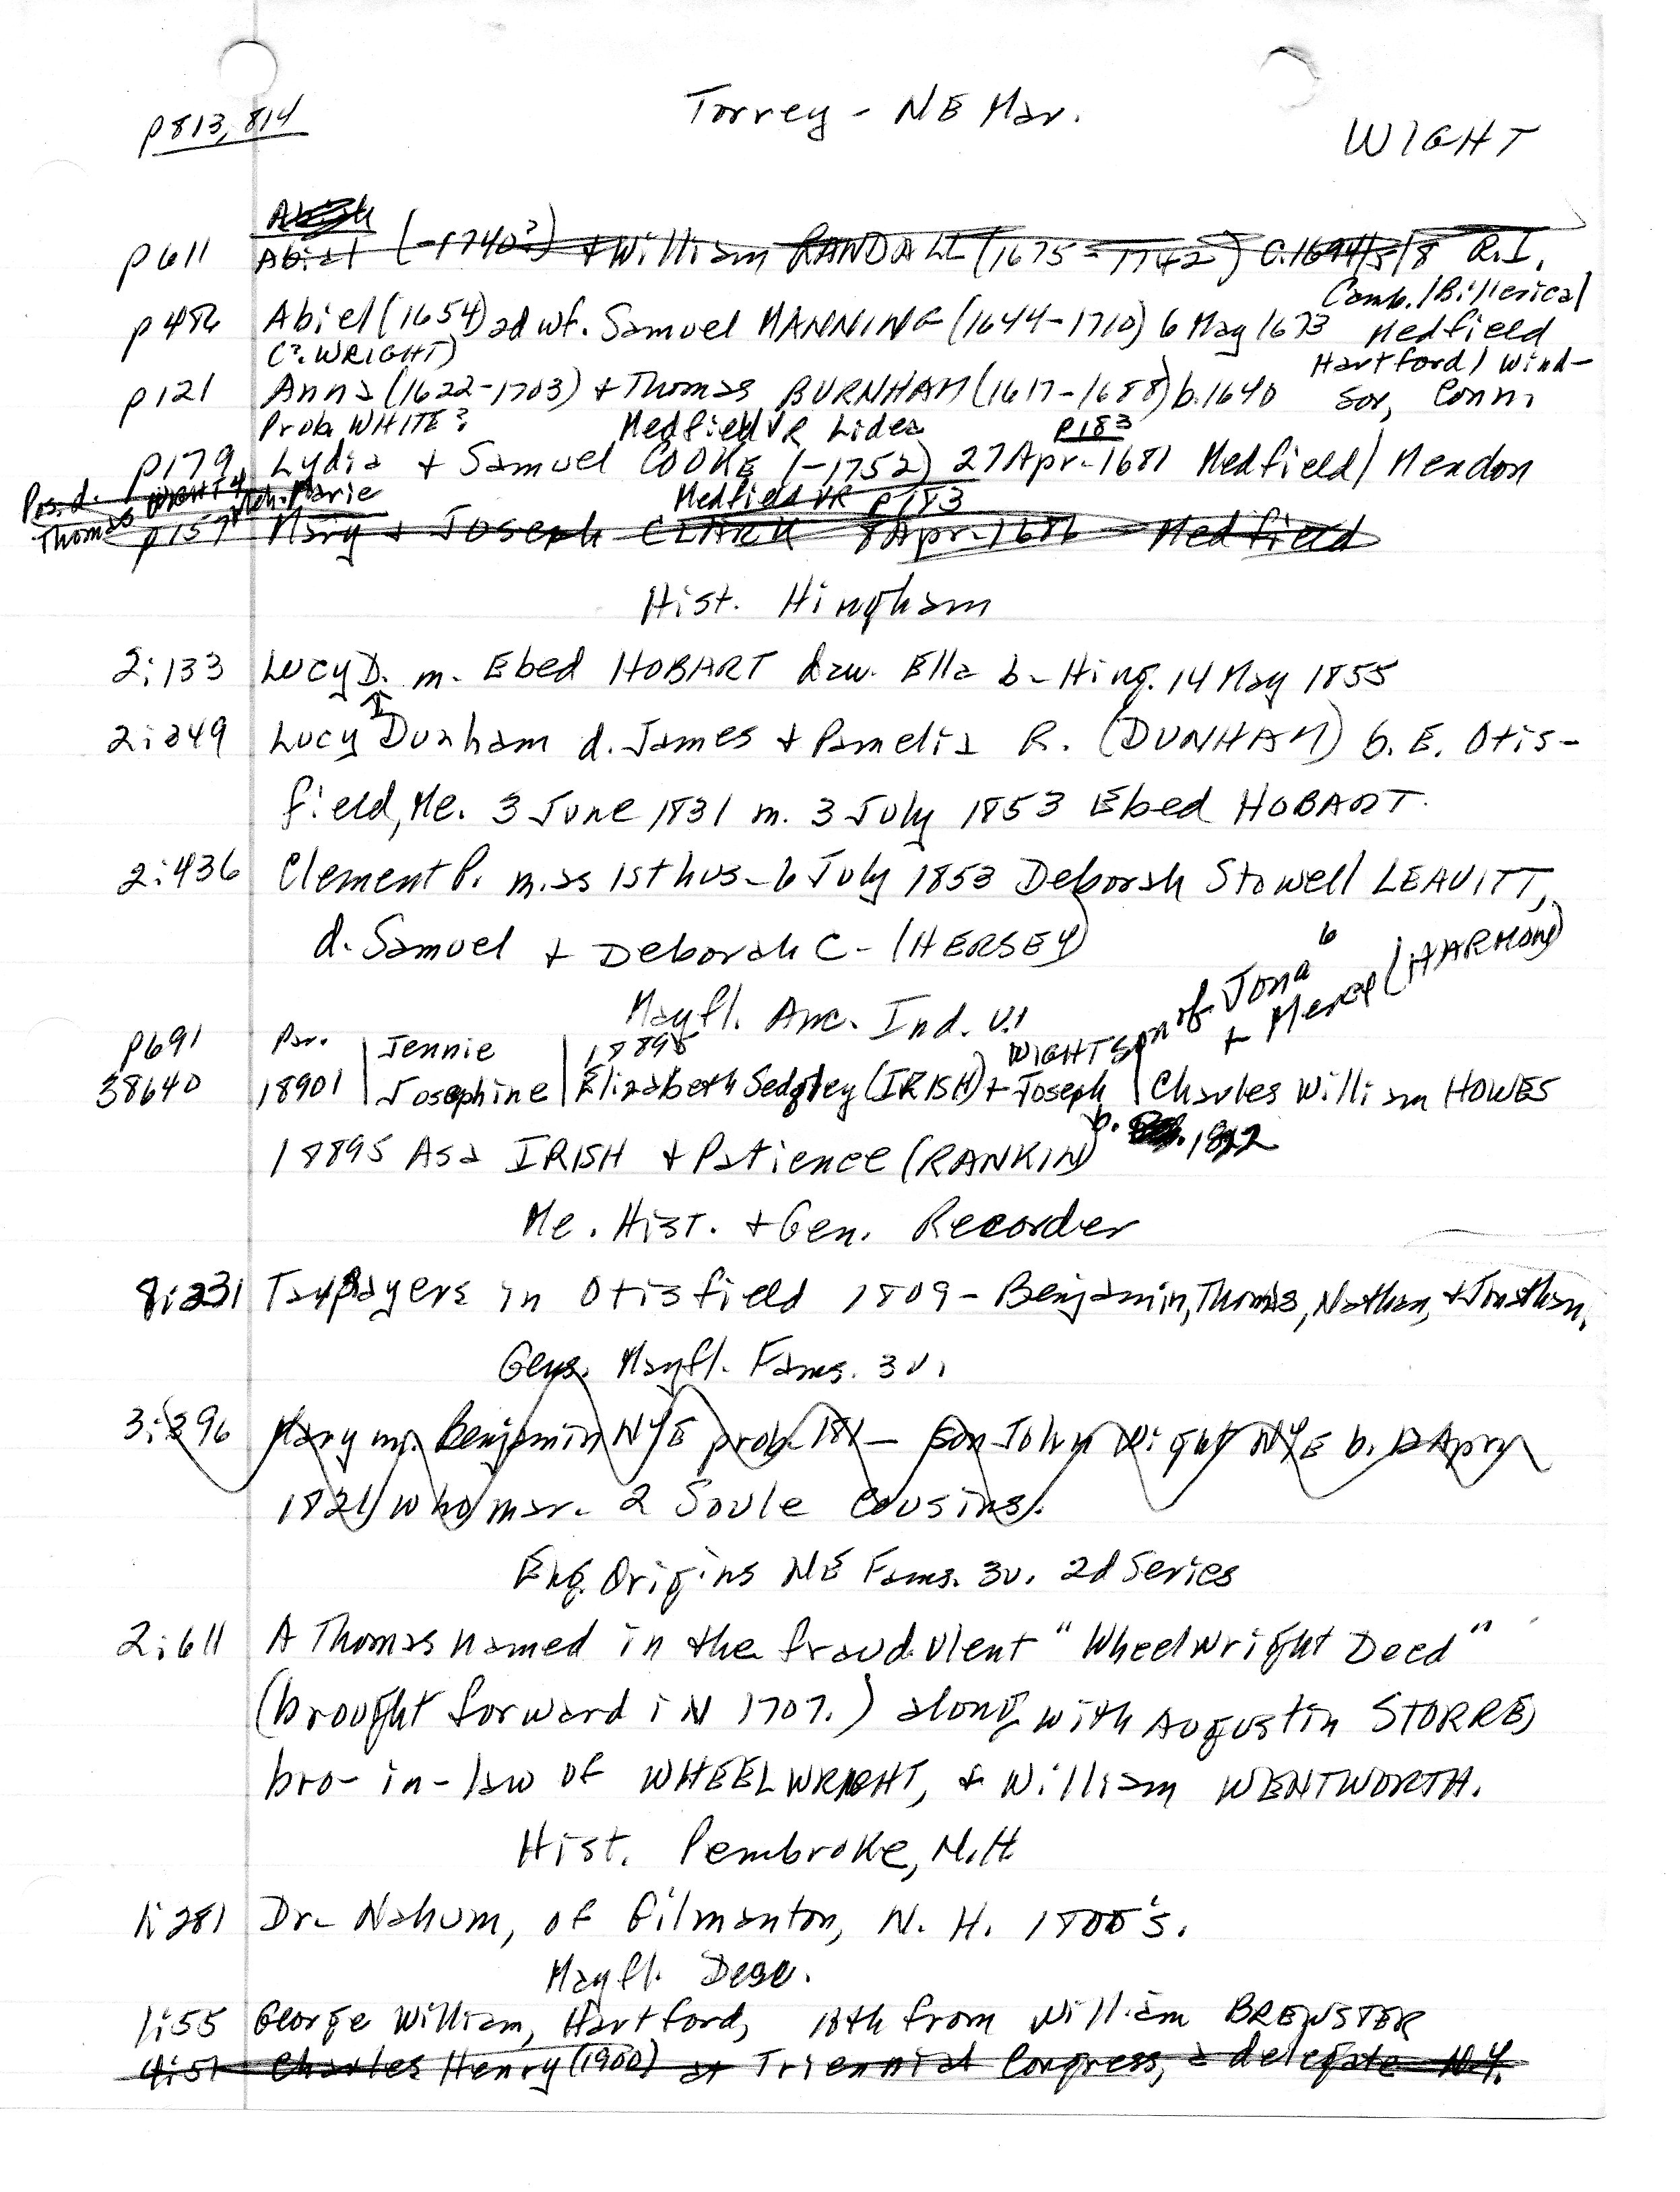 Torrey - NE Mar.
p813, 814
WIGHT
p611 Abial (-1740?) + William RANDALL (1675-1742) c.1694/5/8 R.I.
Camb./Billerica/
p486 Abiel (1654) 2d wf. Samuel MANNING (1644-1710) 6 May 1673 Medfield
(?. WRIGHT) Hartford/Wind-
p121 Anna (1622-1703) + Thomas BURNHAM (1617-1688) b.1640 sor, Conn.
Prob. WHITE? Medfield VR Lidea p183
p179 Lydia + Samuel COOKE (-1752) 27 Apr. 1681 Medfield/Mendon
Pos. d. Thomas WIGHT Marie Medfield VR p183
p157 Mary + Joseph CLARK 8 Apr. 1686 Medfield
Hist. Hingham
2:133 Lucy D. m. Ebed HOBART dau. Ella b- Hing. 14 May 1855
2:249 Lucy Dunham d. James + Pamelia R. (DUNHAM) b. E. Otis-
field, Me. 3 June 1831 m. 3 July 1853 Ebed HOBART.
2:436 Clement P. m. as 1st hus- 6 July 1853 Deborah Stowell LEAVITT,
d. Samuel + Deborah C- (HERSEY)
Mayfl. Anc. Ind. v.1
son of Jona 6 + Mercy (HARMON)
p691 Par. Jennie 18895 WIGHT
38640 18901 Josephine Elizabeth Sedgley (IRISH) + Joseph Charles William HOWES
b. 1822
18895 Asa IRISH + Patience (RANKIN)
Me. Hist. + Gen. Recorder
8:231 Taxpayers in Otisfield 1809 - Benjamin, Thomas, Nathan, + Jonathan.
Gens. Mayfl. Fams. 3v.
3:396 Mary m. Benjamin NYE prob. 181- son John Wight NYE b. 12 Apr
1821 who mar. 2 Soule cousins.
Eng. Origins NE Fams. 3v. 2d Series
2:611 A Thomas named in the fraudulent "Wheelwright Deed"
(brought forward iN 1707.) along with Augustin STORRE,
bro- in-law of WHEELWRIGHT, & William WENTWORTH.
Hist. Pembroke, N.H.
1:281 Dr- Nahum, of Gilmanton, N. H. 1800's.
Mayfl. Desc.
1:55 George William, Hartford, 18th from William BREWSTER
4:51 Charles Henry (1900) at Triennial Congress, a delegate N.Y.